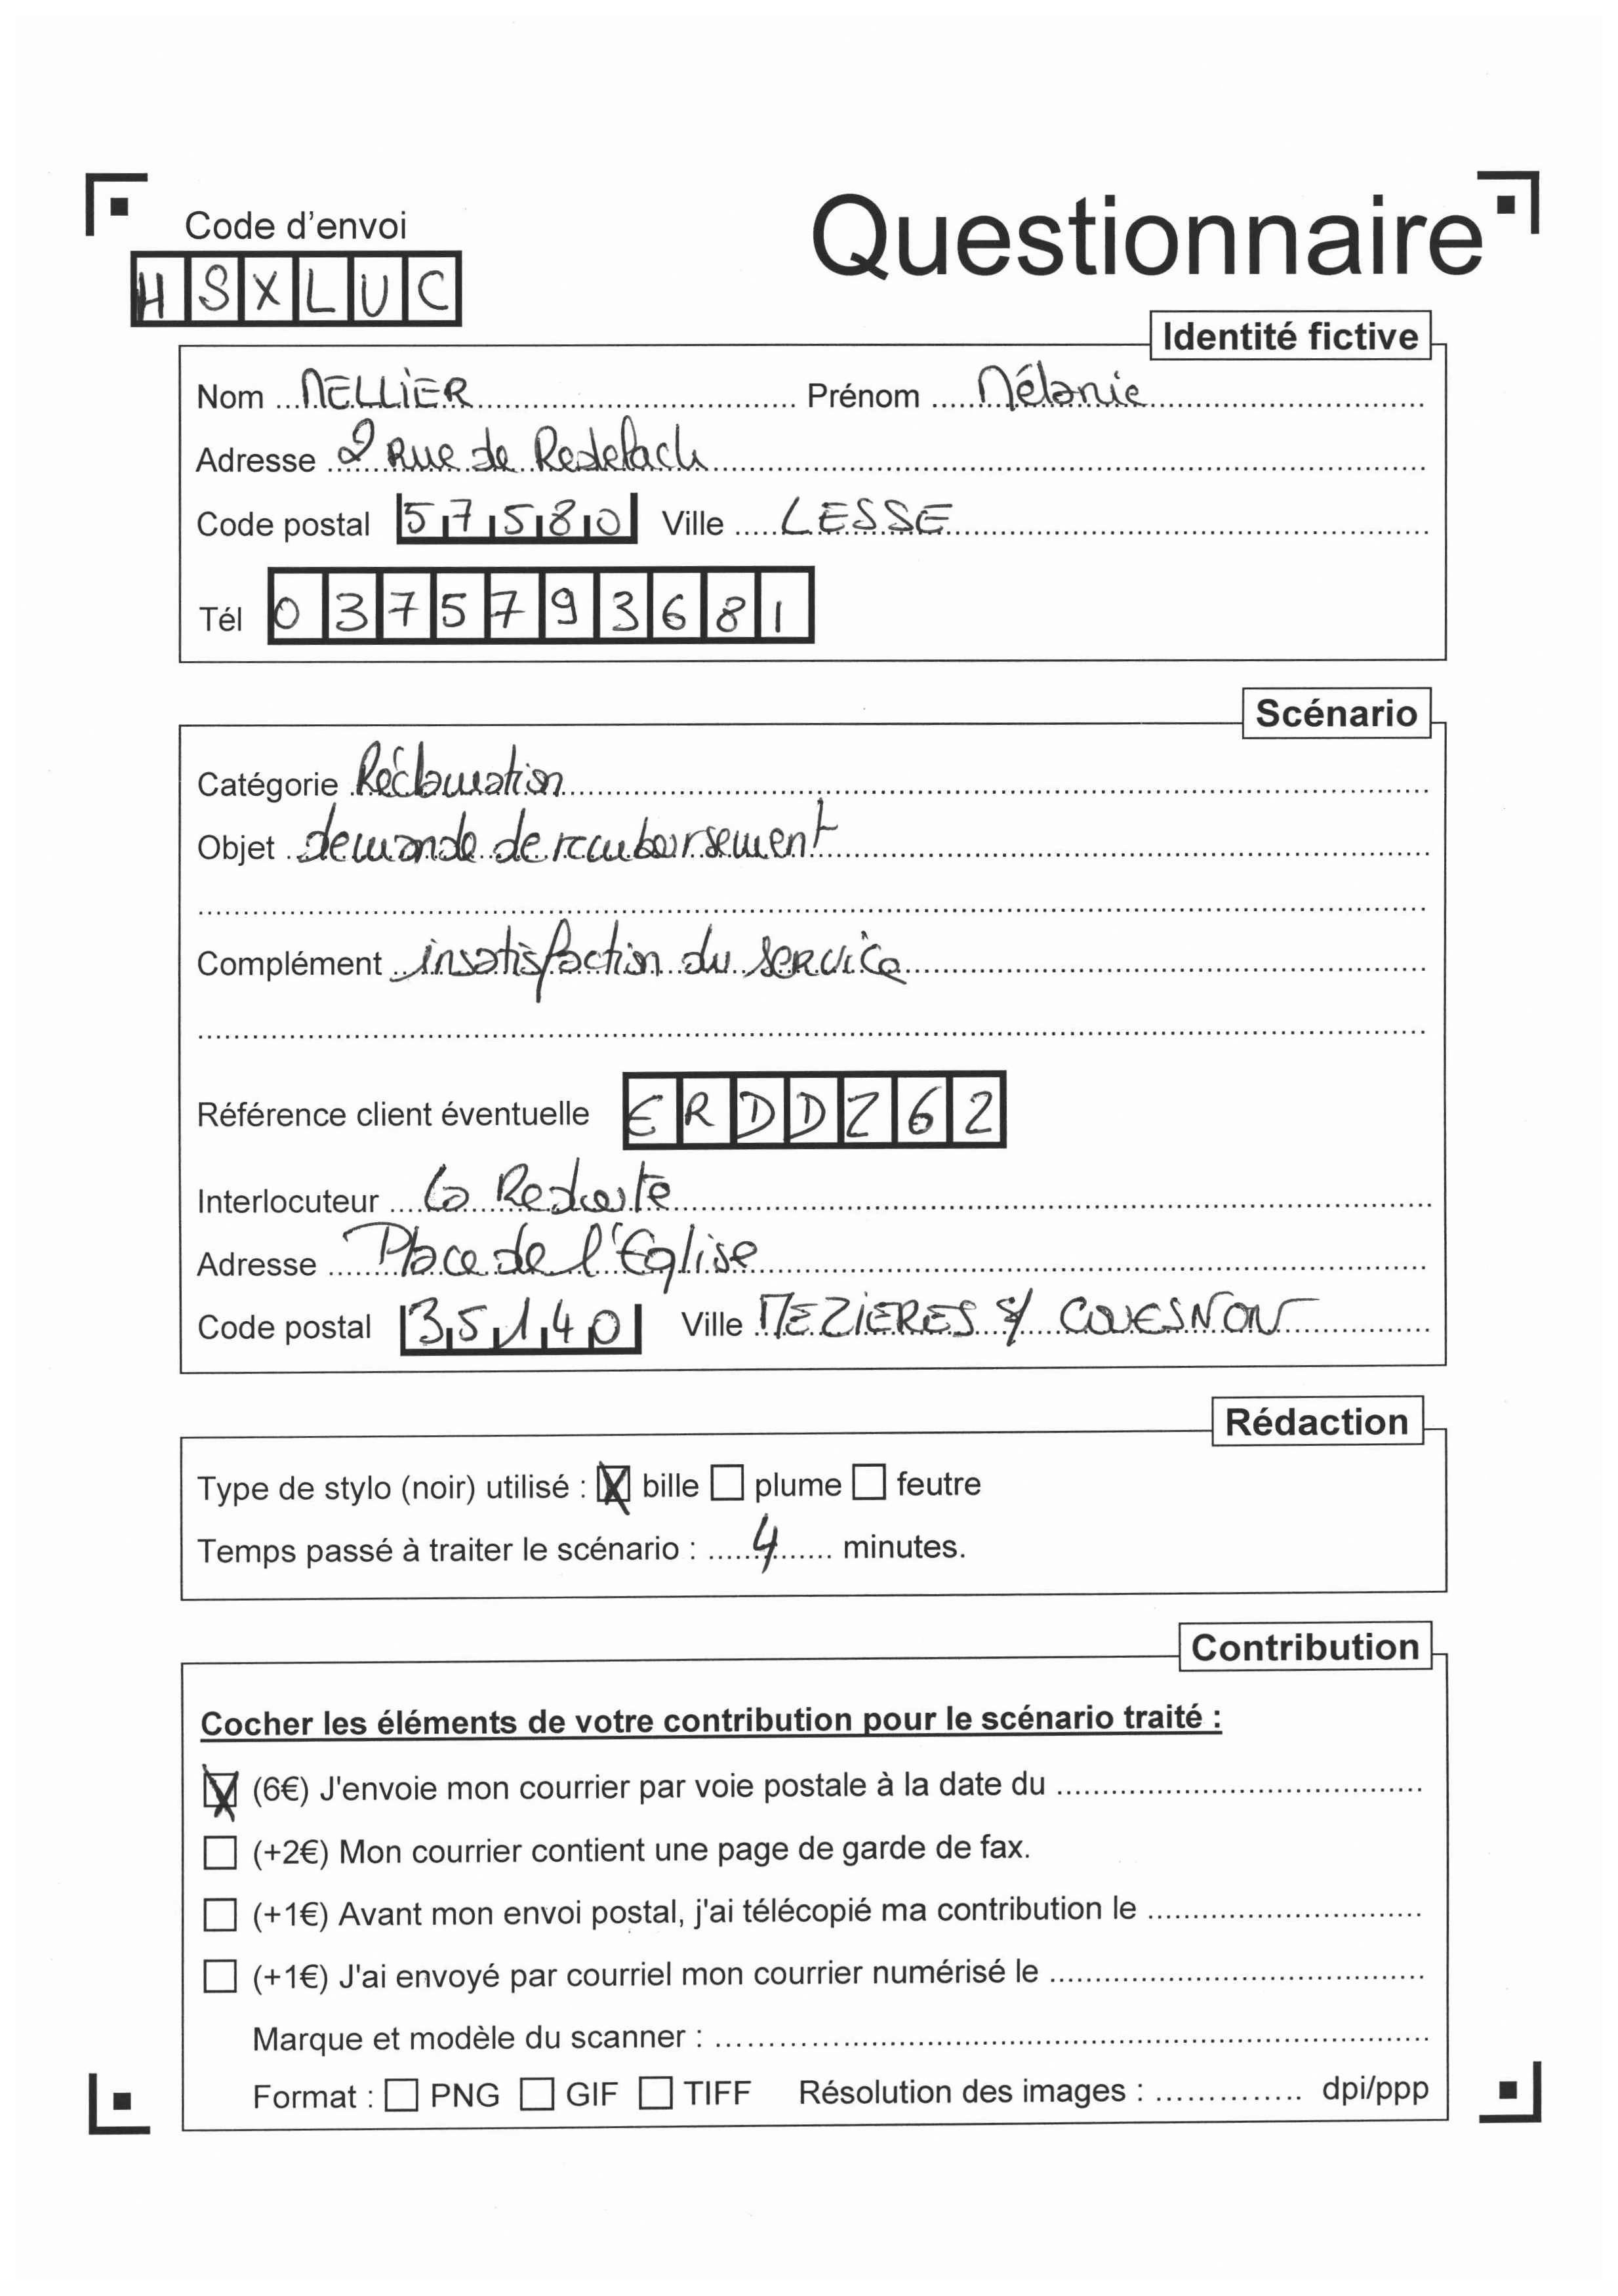 Questionnaire
Code d'envoi
HSXLUC
Identité fictive
Nom MELLIER Prénom Mélanie
Adresse 2 Rue de Redelach
Code postal 57580 Ville LESSE
Tél 0375793681
Scénario
Catégorie Réclamation
Objet demande de remboursement
Complément insatisfaction du service
Référence client éventuelle ERDDZ62
Interlocuteur La Redoute
Adresse Place de l'Eglise
Code postal 35140 Ville MEZIERES S/ COUESNON
Rédaction
Type de stylo (noir) utilisé : bille plume feutre
Temps passé à traiter le scénario : 4 minutes.
Contribution
Cocher les éléments de votre contribution pour le scénario traité :
(6€) J'envoie mon courrier par voie postale à la date du
(+2€) Mon courrier contient une page de garde de fax.
(+1€) Avant mon envoi postal, j'ai télécopié ma contribution le
(+1€) J'ai envoyé par courriel mon courrier numérisé le
Marque et modèle du scanner :
Format : PNG GIF TIFF Résolution des images : dpi/ppp